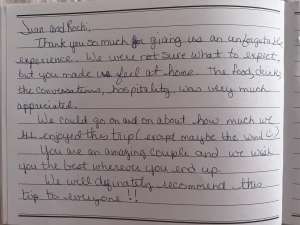 Juan and Rochi,
Thank you so much for giving us an unforgettable
experience. We were not sure what to expect,
but you made us feel at home. The food, drinks,
the conversations, hospitality was very much
appreciated.
We could go on and on about how much we
enjoyed this trip (except maybe the wind ☺)
You are an amazing couple and we wish
you the best wherever you end up.
We will definately recommend this
trip to everyone!!